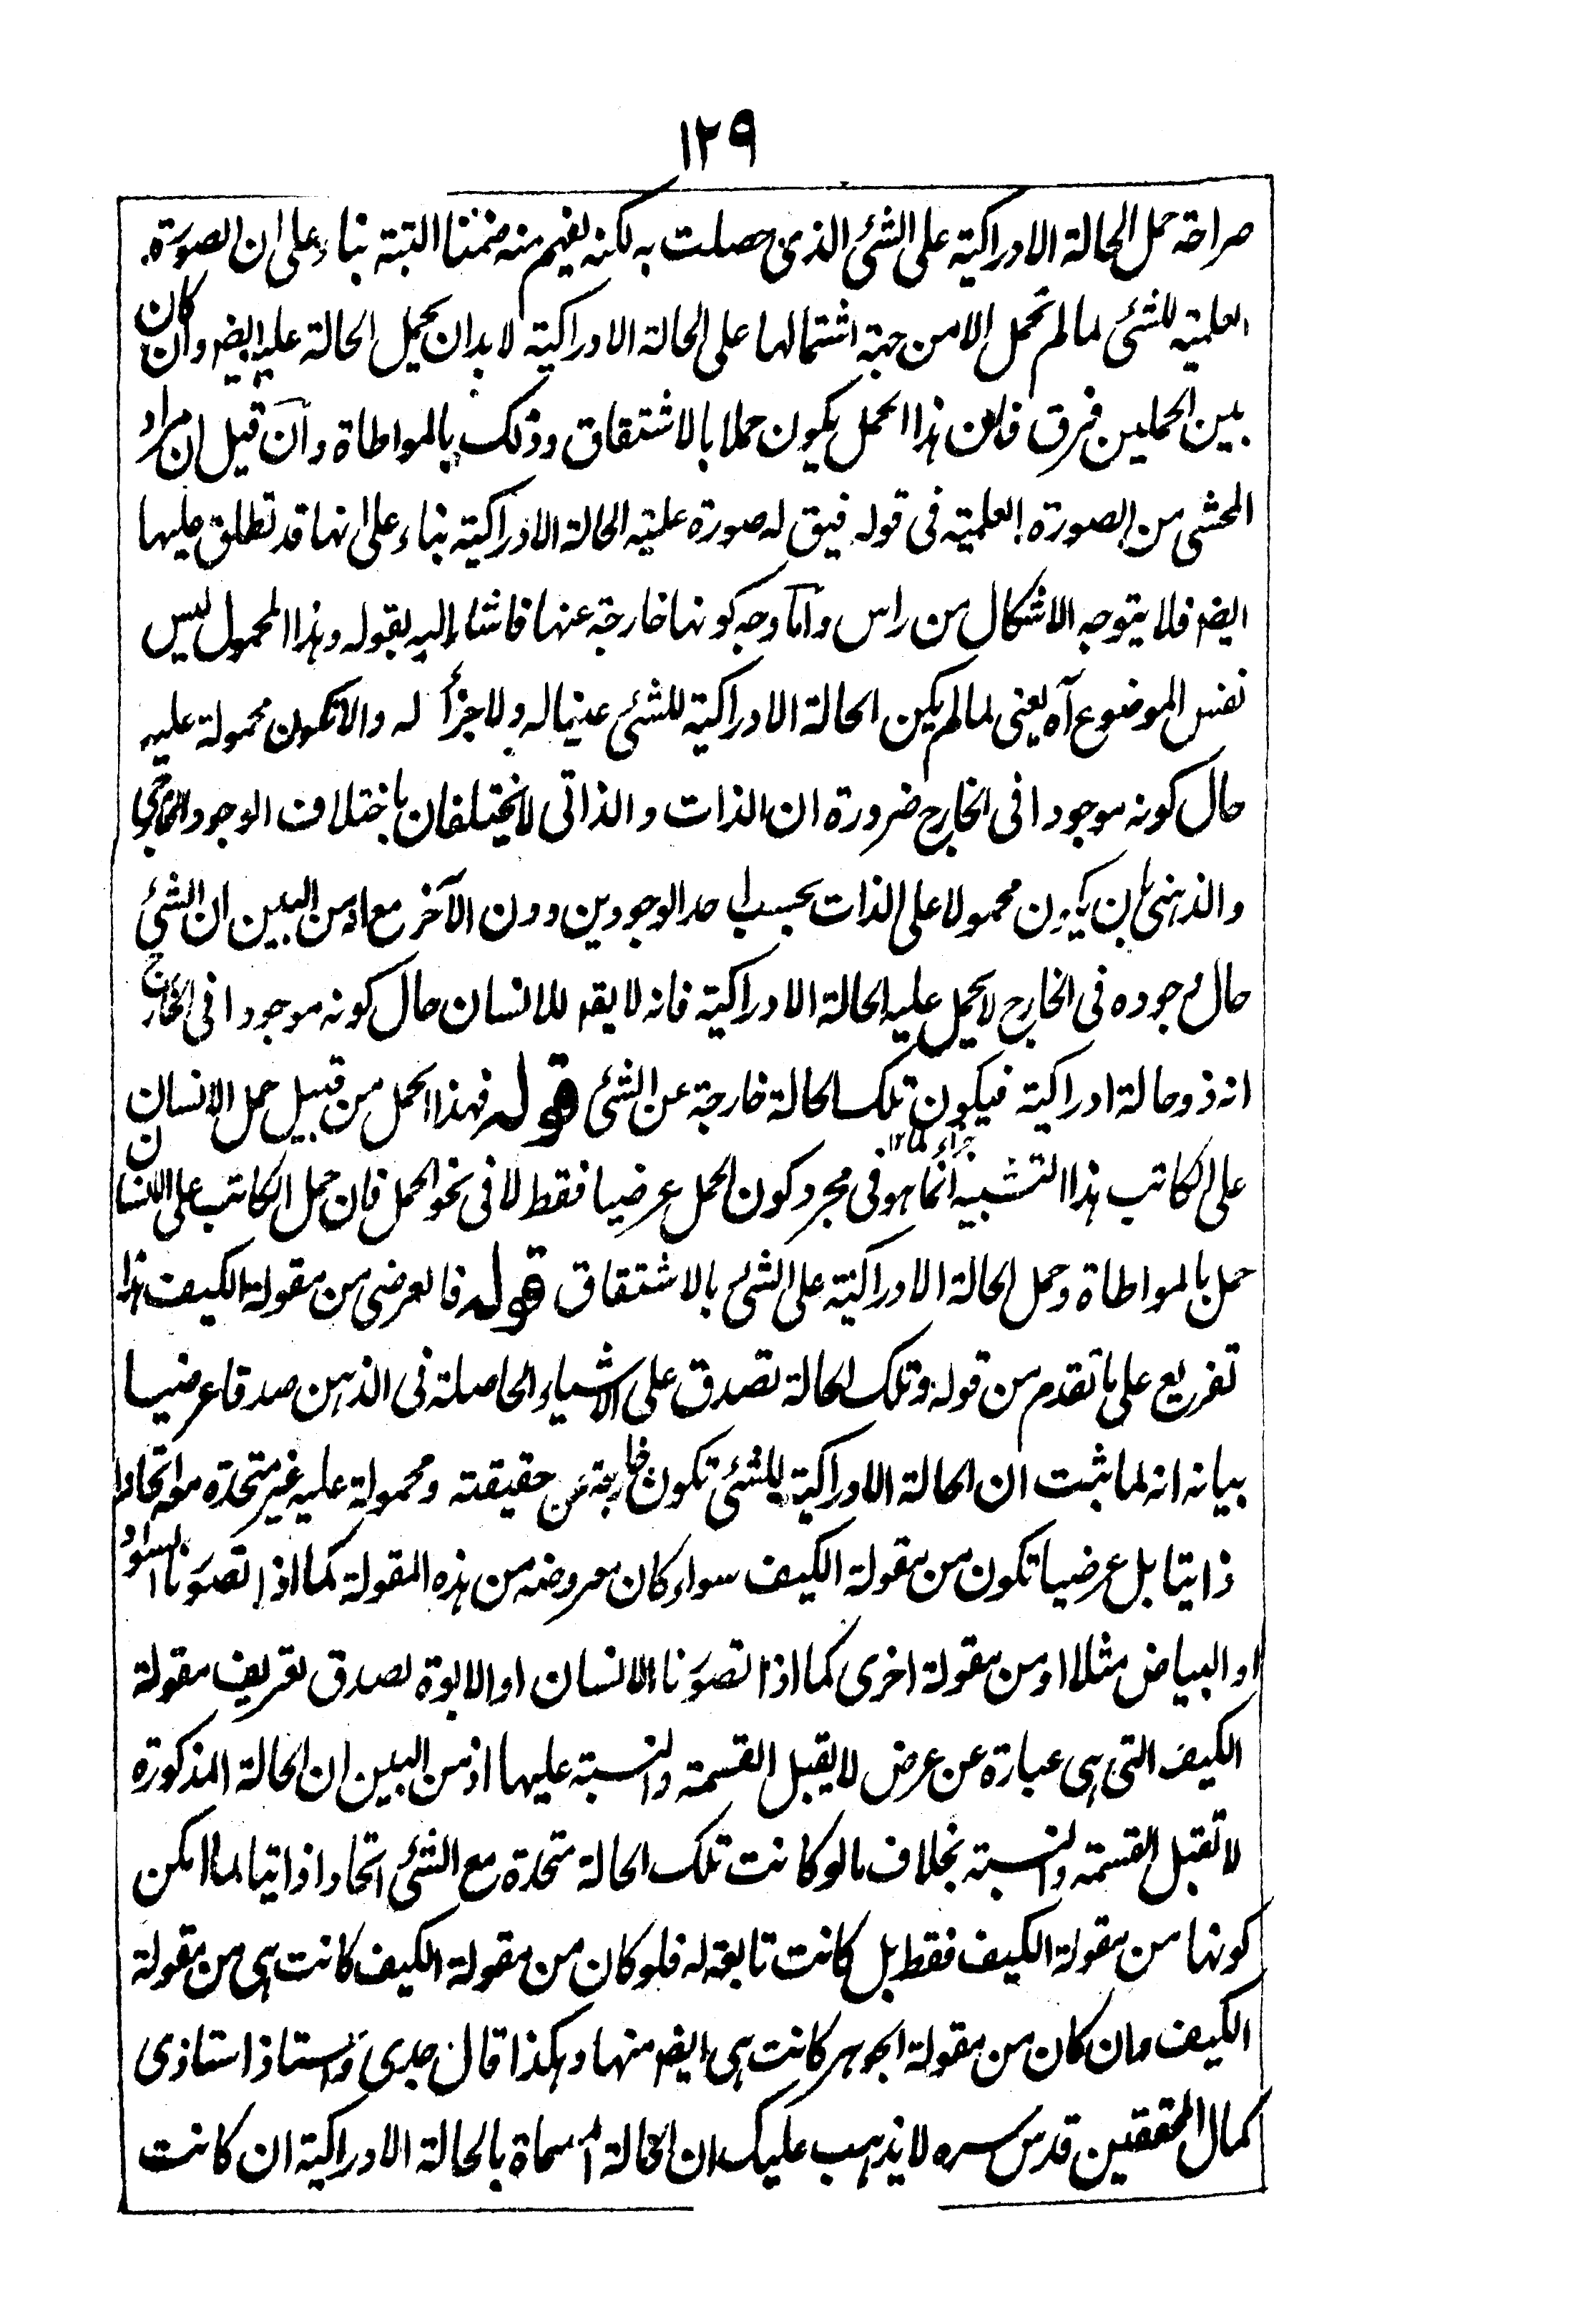 ١٢٩
صراحة حمل الحالة الادراكية على الشئ الذى حصلت به لكنه يفهم منه ضمنا البتة بناء على ان الصورة
العلمية للشئ لما لم تحمل الا من جهة اشتمالها على الحالة الادراكية لا بد ان يحمل الحالة عليه ايضہ وان كان
بين الحملين فرق فان هذا الحمل يكون حملا بالاشتقاق وذلك بالمواطاة وان قيل ان مراد
المحشى من الصورة العلمية فى قوله فيق له صورة علمية الحالة الادراكية بناء على انها قد تطلق عليها
ايضہ فلا يتوجه الاشكال من راس واما وجه كونها خارجة عنها فاشار اليه بقوله وهذا المحمول ليس
نفس الموضوع آه يعنى لما لم يكن الحالة الادراكية للشئ عينا له ولا جزأ له والا تكون محمولة عليه
حال كونه موجودا فى الخارج ضرورة ان الذات والذاتى لا يختلفان باختلاف الوجود الخارجى
والذهنى بان يكون محمولا على الذات بحسب احد الوجودين دون الآخر مع اذ من البين ان الشئ
حال وجوده فى الخارج لا يحمل عليه الحالة الادراكية فانه لا يقہ للانسان حال كونه موجودا فى الخارج
انه ذو حالة ادراكية فيكون تلك الحالة خارجة عن الشئ قوله فهذا الحمل من قبيل حمل الانسان
جزاء لما ١٢
على الكاتب هذا التشبيه انما هو فى مجرد كون الحمل عرضيا فقط لا فى نحو الحمل فان حمل الكاتب على الانسان
حمل بالمواطاة وحمل الحالة الادراكية على الشئ بالاشتقاق قوله فالعرضى من مقولة الكيف هذا
تفريع على ما تقدم من قوله وتلك الحالة تصدق على الاشياء الحاصلة فى الذهن صدقا عرضيا
بيانه انه لما ثبت ان الحالة الادراكية للشئ تكون خارجة عن حقيقته ومحمولة عليه غير متحدة معه اتحادا
ذاتيا بل عرضيا تكون من مقولة الكيف سواء كان معروضه من هذه المقولة كما اذا تصورنا السواد
او البياض مثلا او من مقولة اخرى كما اذا تصورنا الانسان او الابوة لصدق تعريف مقولة
الكيف التى هى عبارة عن عرض لا يقبل القسمة والنسبة عليها اذ من البين ان الحالة المذكورة
لا تقبل القسمة والنسبة بخلاف ما لو كانت تلك الحالة متحدة مع الشئ اتحادا ذاتيا لما امكن
كونها من مقولة الكيف فقط بل كانت تابعة له فلو كان من مقولة الكيف كانت هى من مقولة
الكيف وان كان من مقولة الجوهر كانت هى ايضہ منها وهكذا قال جدى واستاذ استاذى
كمال المحققين قدس سره لا يذهب عليك ان الحالة المسماة بالحالة الادراكية ان كانت